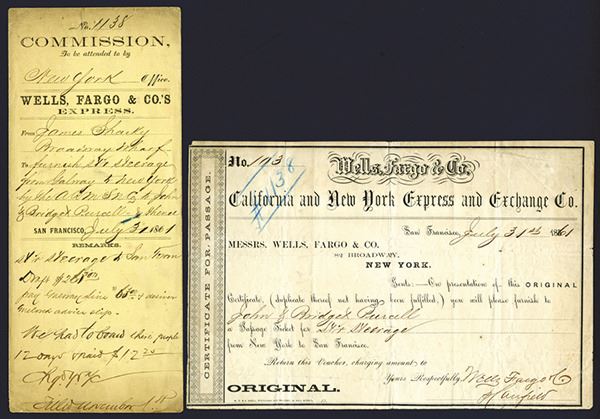 No. 1138
COMMISSION,
To be attended to by
New York Office.
WELLS, FARGO & CO.'S
EXPRESS.
From James Sharky
Broadway Wharf
To furnish Str Steerage
from Galway to New York
by the to John
& Bridget Purcell & thence
SAN FRANCISCO, July 31 1861
REMARKS.
Str Steerage to San Fran
pay
enclosed advice slip.
We had to board these people
12 days & paid $12
Filled November 1st
CERTIFICATE FOR PASSAGE.
No. 193
#1138
Wells, Fargo & Co.
California and New York Express and Exchange Co.
San Francisco, July 31st 1861
MESSRS. WELLS, FARGO & CO.
82 BROADWAY,
NEW YORK.
Gents:—On presentation of this ORIGINAL
Certificate, (duplicate thereof not having been fulfilled,) you will please furnish to
John & Bridget Purcell
a Passage Ticket for Str Steerage
from New York to San Francisco.
Return this Voucher, charging amount to
Yours Respectfully, Wells Fargo & Co
ORIGINAL.